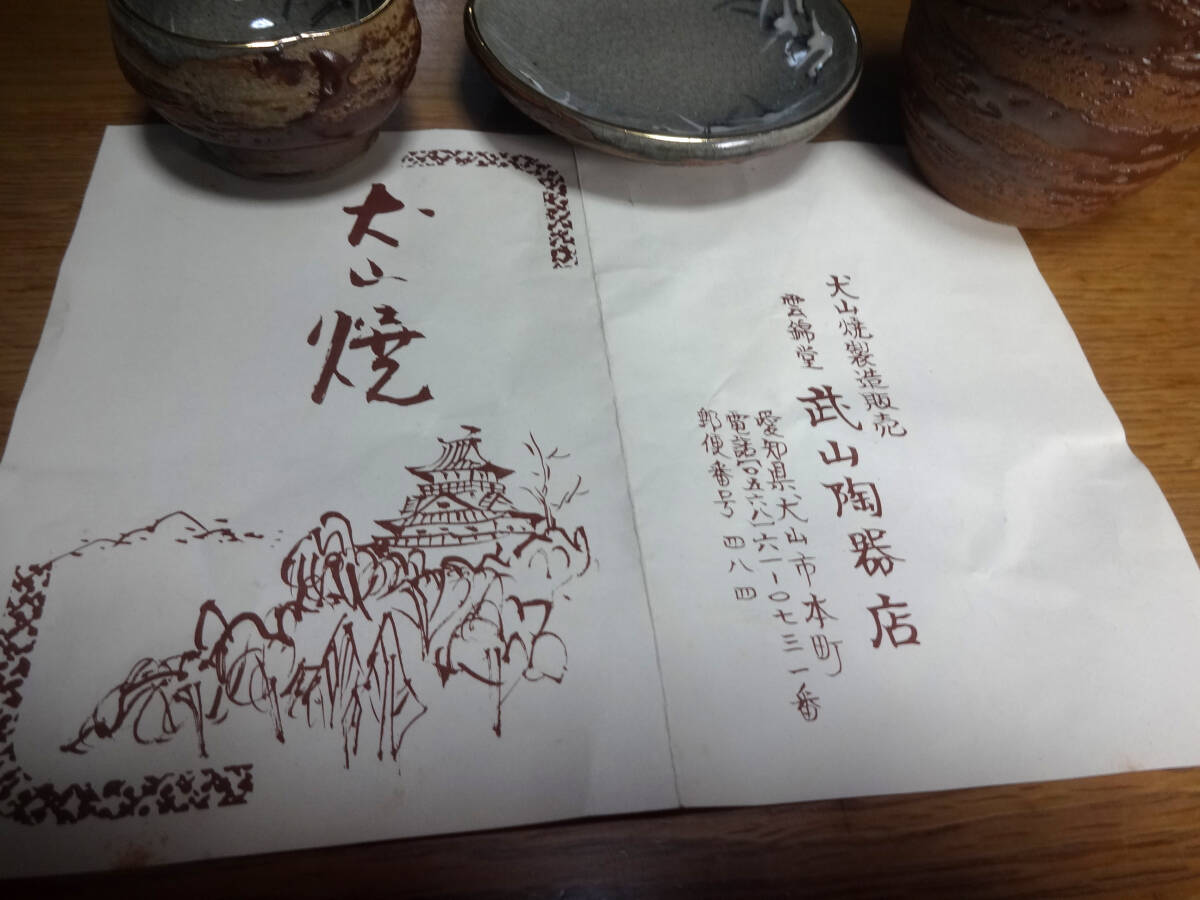 犬山焼
犬山焼製造販売
雲錦堂 武山陶器店
愛知県犬山市本町
電話(〇五六八)六一-〇七三一番
郵便番号 四八四